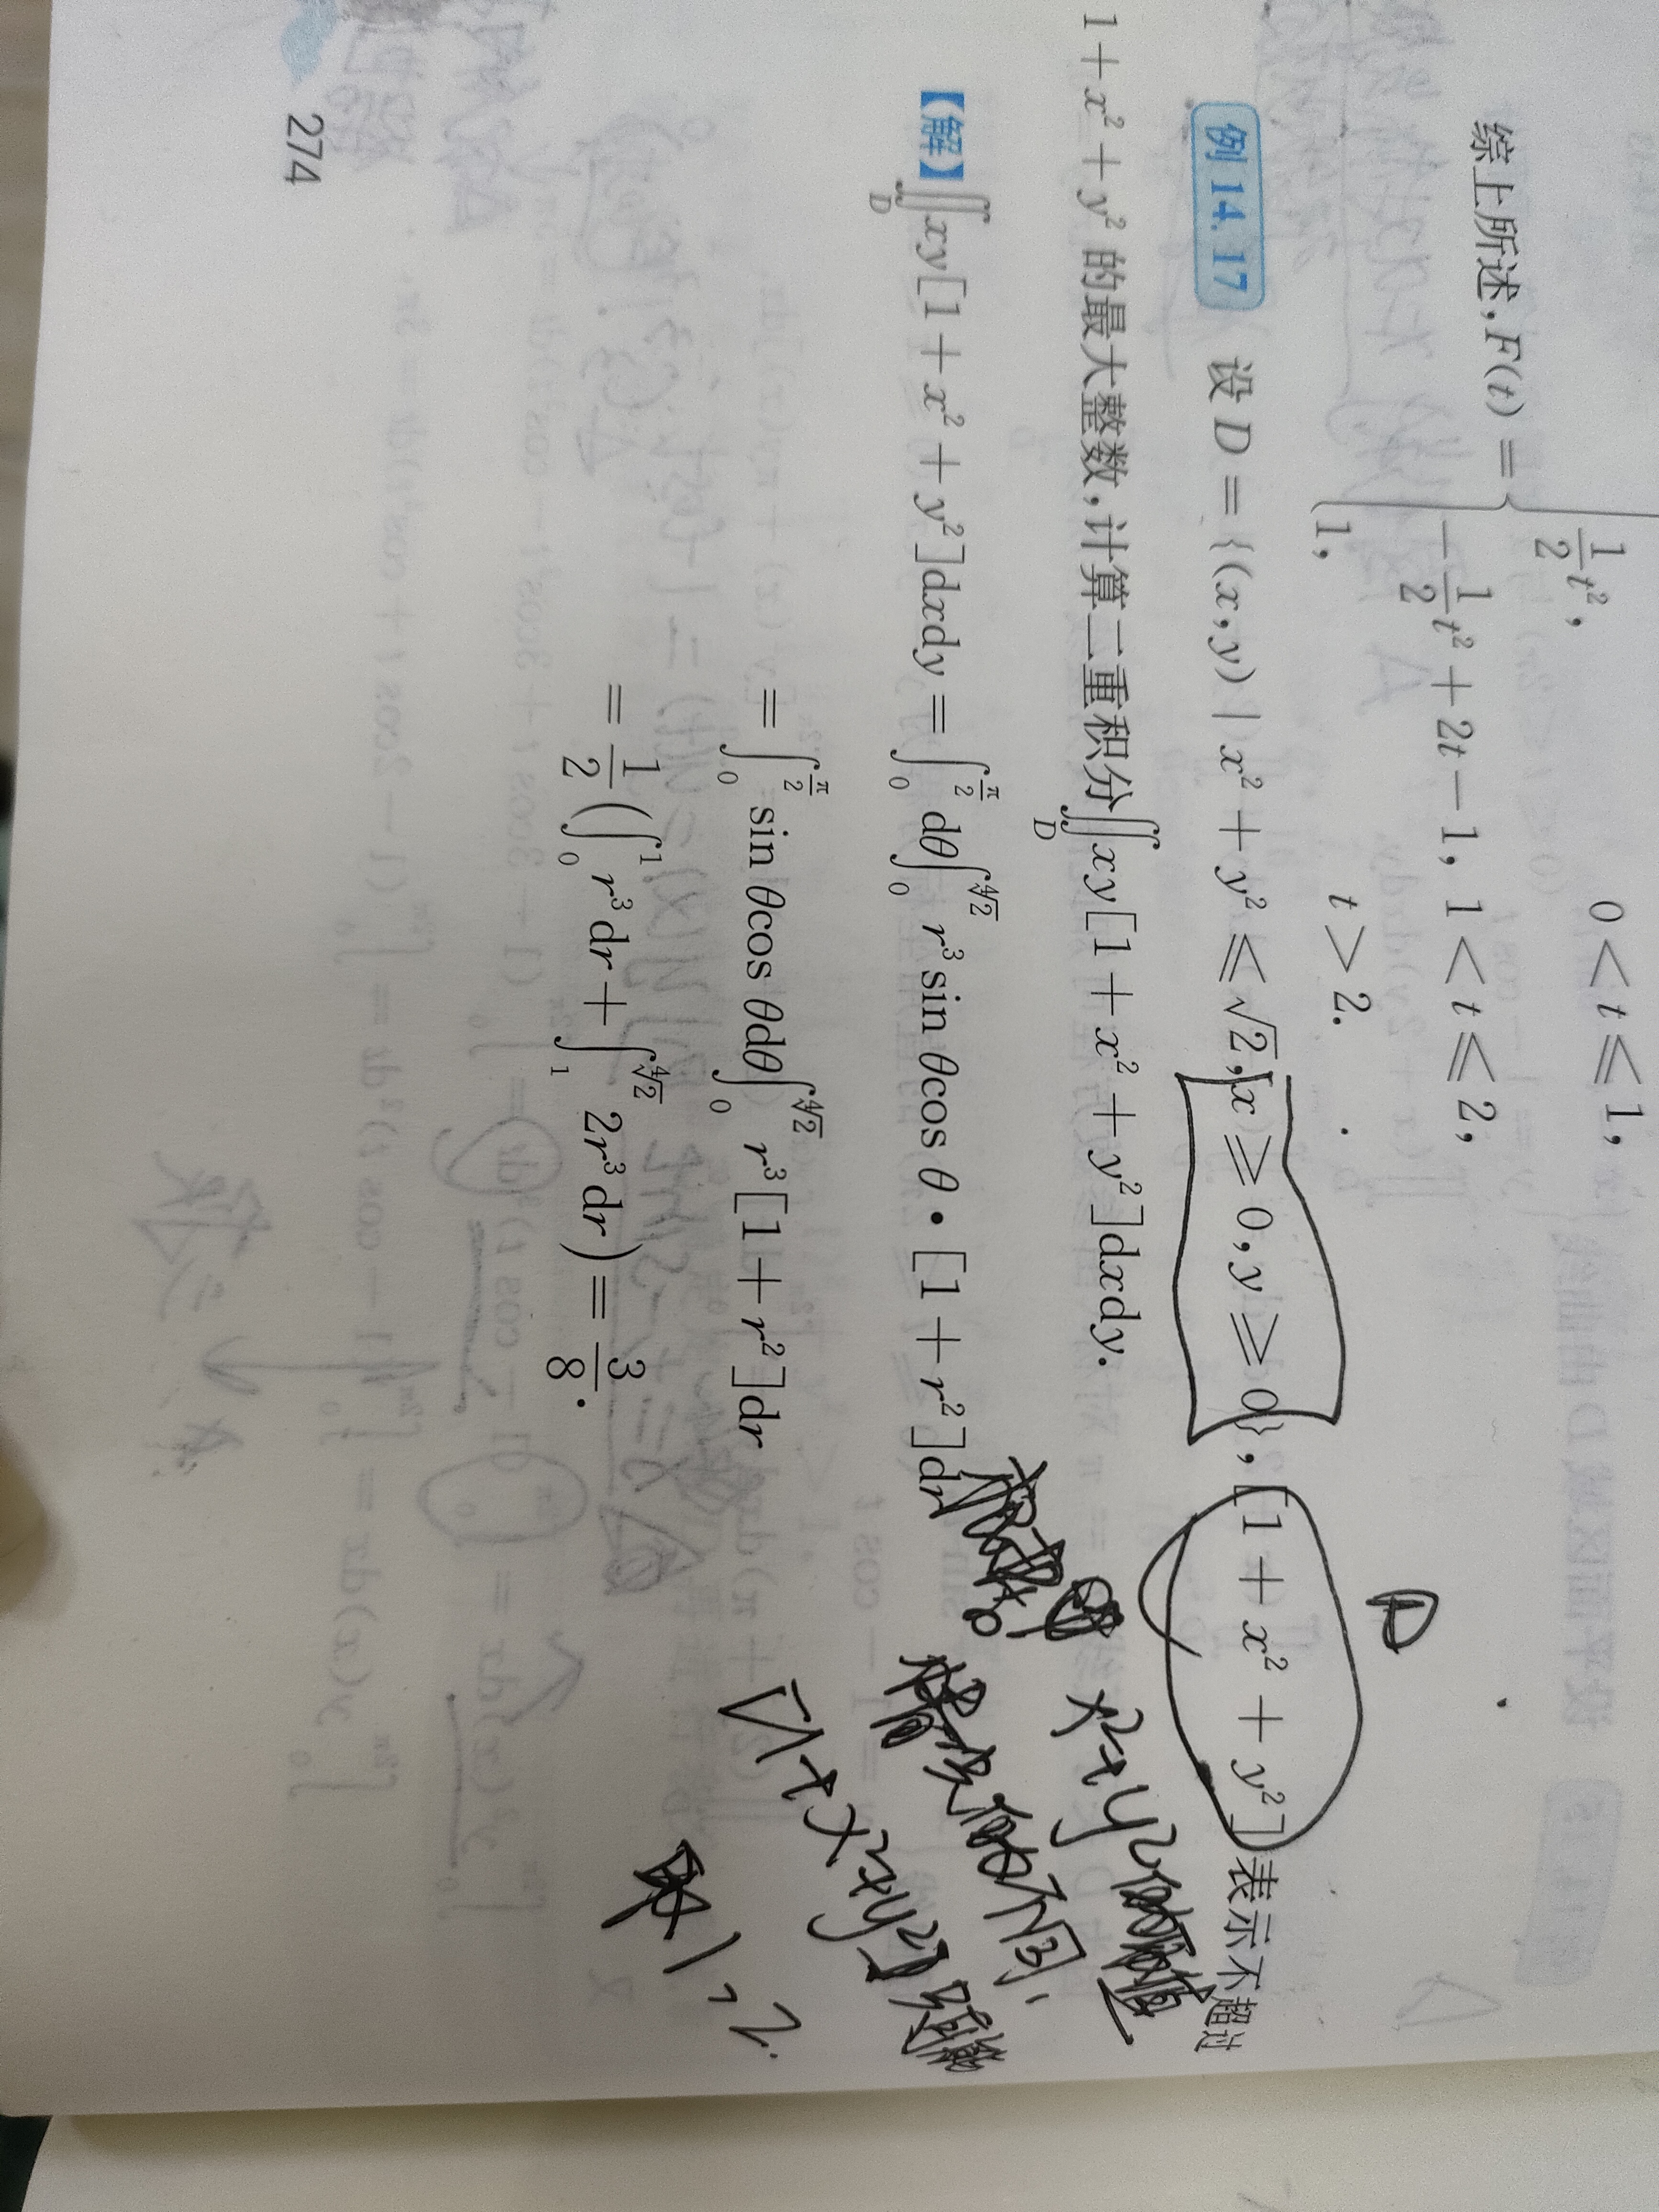 综上所述,F(t) = { \frac{1}{2}t², 0 < t ⩽ 1,
-\frac{1}{2}t² + 2t - 1, 1 < t ⩽ 2,
1, t > 2.
例 14.17 设 D = {(x,y) | x² + y² ⩽ √2, x ⩾ 0, y ⩾ 0}, [1 + x² + y²] 表示不超过
1 + x² + y² 的最大整数,计算二重积分∬_D xy[1 + x² + y²]dxdy.
【解】∬_D xy[1 + x² + y²]dxdy = ∫_0^{\frac{π}{2}} dθ∫_0^{∜2} r³sin θcos θ · [1 + r²]dr
= ∫_0^{\frac{π}{2}} sin θcos θdθ∫_0^{∜2} r³[1 + r²]dr
= \frac{1}{2}(∫_0^1 r³dr + ∫_1^{∜2} 2r³dr) = \frac{3}{8}.
D
x²+y²
[1+x²+y²]只能
取1,2.
274